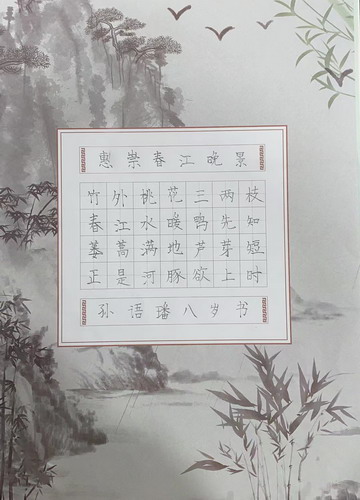 惠崇春江晚景
竹外桃花三两枝
春江水暖鸭先知
蒌蒿满地芦芽短
正是河豚欲上时
孙语璠八岁书